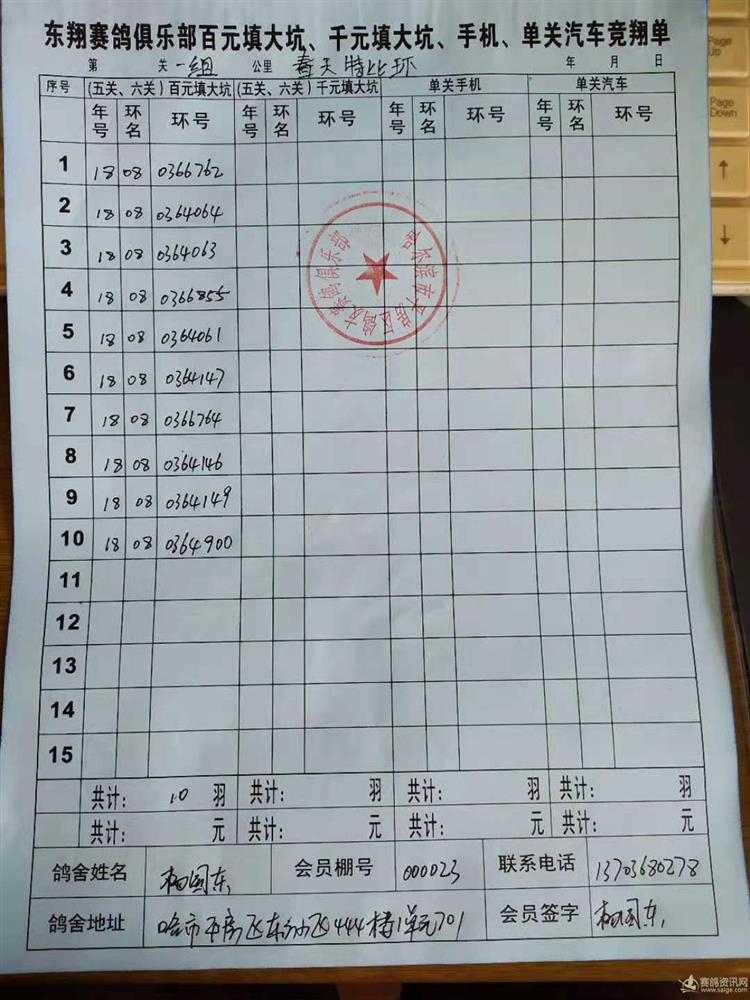 东翔赛鸽俱乐部百元填大坑、千元填大坑、手机、单关汽车竞翔单
第 关 一组 公里 春天特比环 年 月 日
序号 (五关、六关)百元填大坑 (五关、六关)千元填大坑 单关手机 单关汽车
年号 环名 环号 年号 环名 环号 年号 环名 环号 年号 环名 环号
1 18 08 0366762
2 18 08 0364064
3 18 08 0364063
4 18 08 0366855
5 18 08 0364061
6 18 08 0364147
7 18 08 0366764
8 18 08 0364146
9 18 08 0364149
10 18 08 0364900
11
12
13
14
15
共计: 10 羽 共计: 羽 共计: 羽 共计: 羽
共计: 元 共计: 元 共计: 元 共计: 元
鸽舍姓名 国东 会员棚号 000023 联系电话 13703680278
鸽舍地址 哈市平房 444楼1单元701 会员签字 国东
哈尔滨市平房区 赛鸽俱乐部
Page Up
Page Down
↑
↓
赛鸽资讯网
www.saige.com